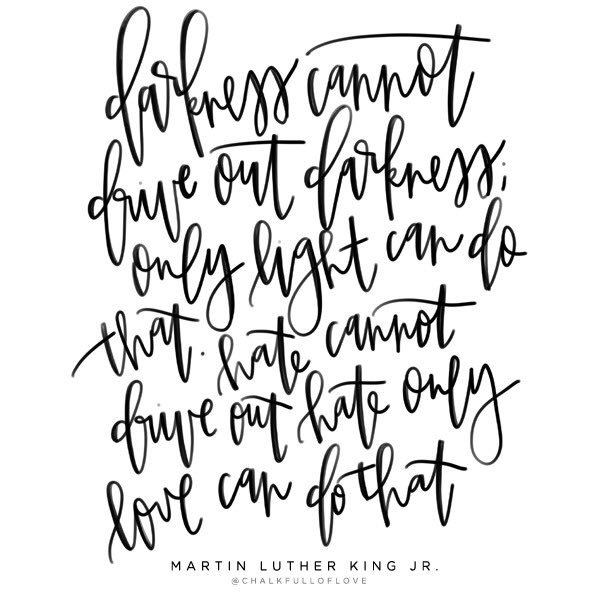 darkness cannot
drive out darkness;
only light can do
that. hate cannot
drive out hate only
love can do that
MARTIN LUTHER KING JR.
@CHALKFULLOFLOVE